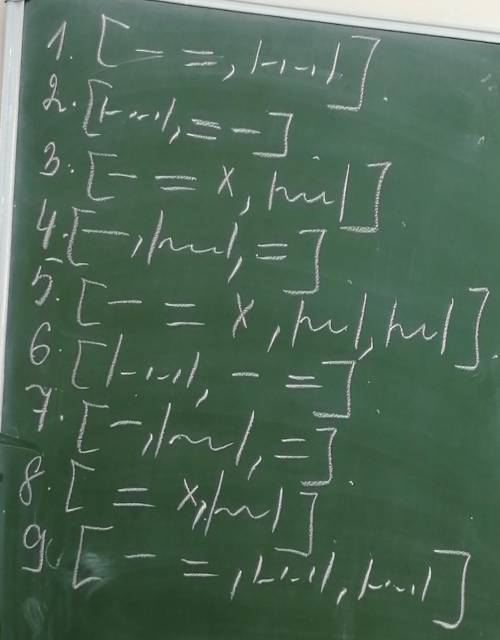 1. [— =, |-·-·|].
2. [|-·-·|, = —]
3. [— = x, |~~|]
4. [—, |~~|, =]
5. [— = x, |~~|, |~~|].
6. [|-·-·|, — =].
7. [—, |~~|, =].
8. [ = x, |~~|]
9. [— =, |-·-·|, |-·-·|]